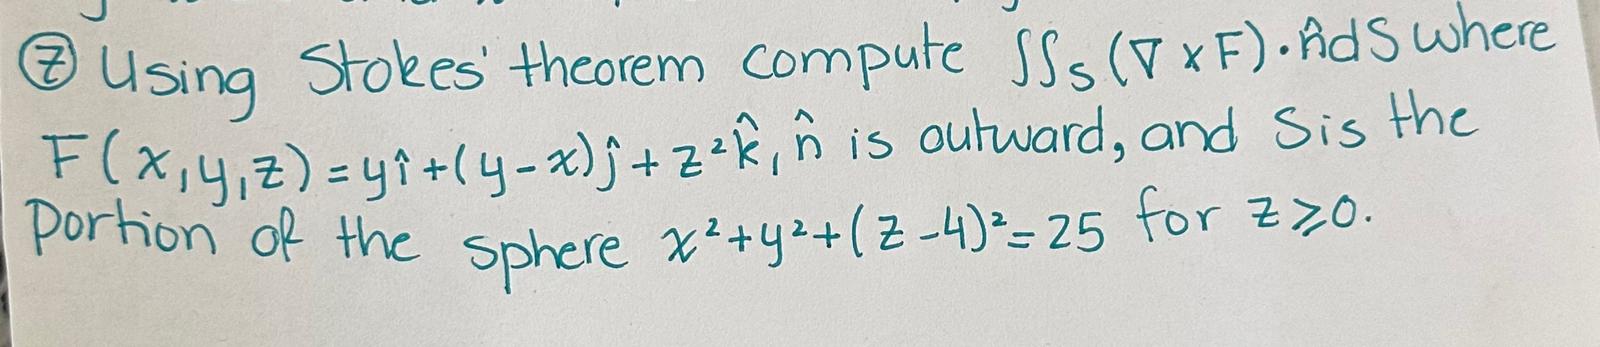 ⑦ Using Stokes' theorem compute ∬ₛ (∇ × F) · n̂ dS where
F(x,y,z) = yî + (y-x)ĵ + z²k̂, n̂ is outward, and S is the
portion of the sphere x² + y² + (z-4)² = 25 for z ⩾ 0.